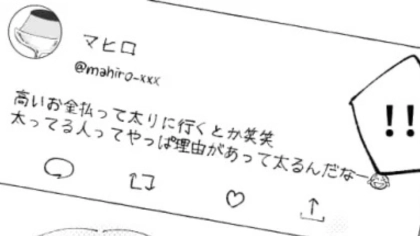 マヒロ
@mahiro-xxx
高いお金払って太りに行くとか笑笑
太ってる人ってやっぱ理由があって太るんだなー
!!